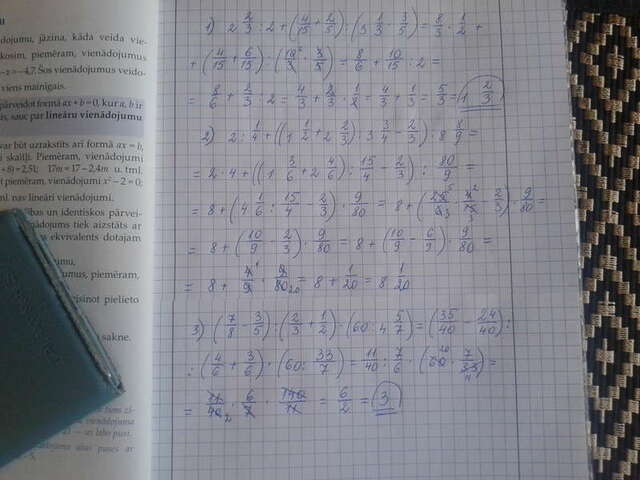 dojumu, jāzina, kāda veida vie-
kosim, piemēram, vienādojumus
-z=-4,7. Šos vienādojumus veido-
viens mainīgais.
pārveidot formā ax + b = 0, kur a, b ir
sauc par lineāru vienādojumu
var būt uzrakstīts arī formā ax = b,
skaitļi. Piemēram, vienādojumi
+8) = 2,51; 17m = 17 – 2,4m u. tml.
piemēram, vienādojumi x² – 2 = 0;
nav lineāri vienādojumi.
bas un identiskos pārvei-
nādojums tiek aizstāts ar
ekvivalents dotajam
umus, piemēram,
pielieto
sakne.
1) 2 2/3 : 2 + (4/15 + 2/5) : (3 1/3 · 3/5) = 8/3 · 1/2 +
+ (4/15 + 6/15) : (10/3 · 3/5) = 8/6 + 10/15 : 2 =
= 8/6 + 2/3 : 2 = 4/3 + 2/3 · 1/2 = 4/3 + 1/3 = 5/3 = 1 2/3
2) 2 : 1/4 + ((1 1/2 + 2 2/3) : 3 3/4 - 2/3) : 8 8/9 =
= 2 · 4 + ((1 3/6 + 2 4/6) : 15/4 - 2/3) : 80/9 =
= 8 + (4 1/6 : 15/4 - 2/3) · 9/80 = 8 + (25/6 · 4/15 - 2/3) · 9/80 =
= 8 + (10/9 - 2/3) · 9/80 = 8 + (10/9 - 6/9) · 9/80 =
= 8 + 4/9 · 9/80 = 8 + 1/20 = 8 1/20
3) (7/8 - 3/5) : (2/3 + 1/2) · (60 : 4 5/7) = (35/40 - 24/40) :
: (4/6 + 3/6) · (60 : 33/7) = 11/40 : 7/6 · (60 · 7/33) =
= 11/40 · 6/7 · 140/11 = 6/2 = 3